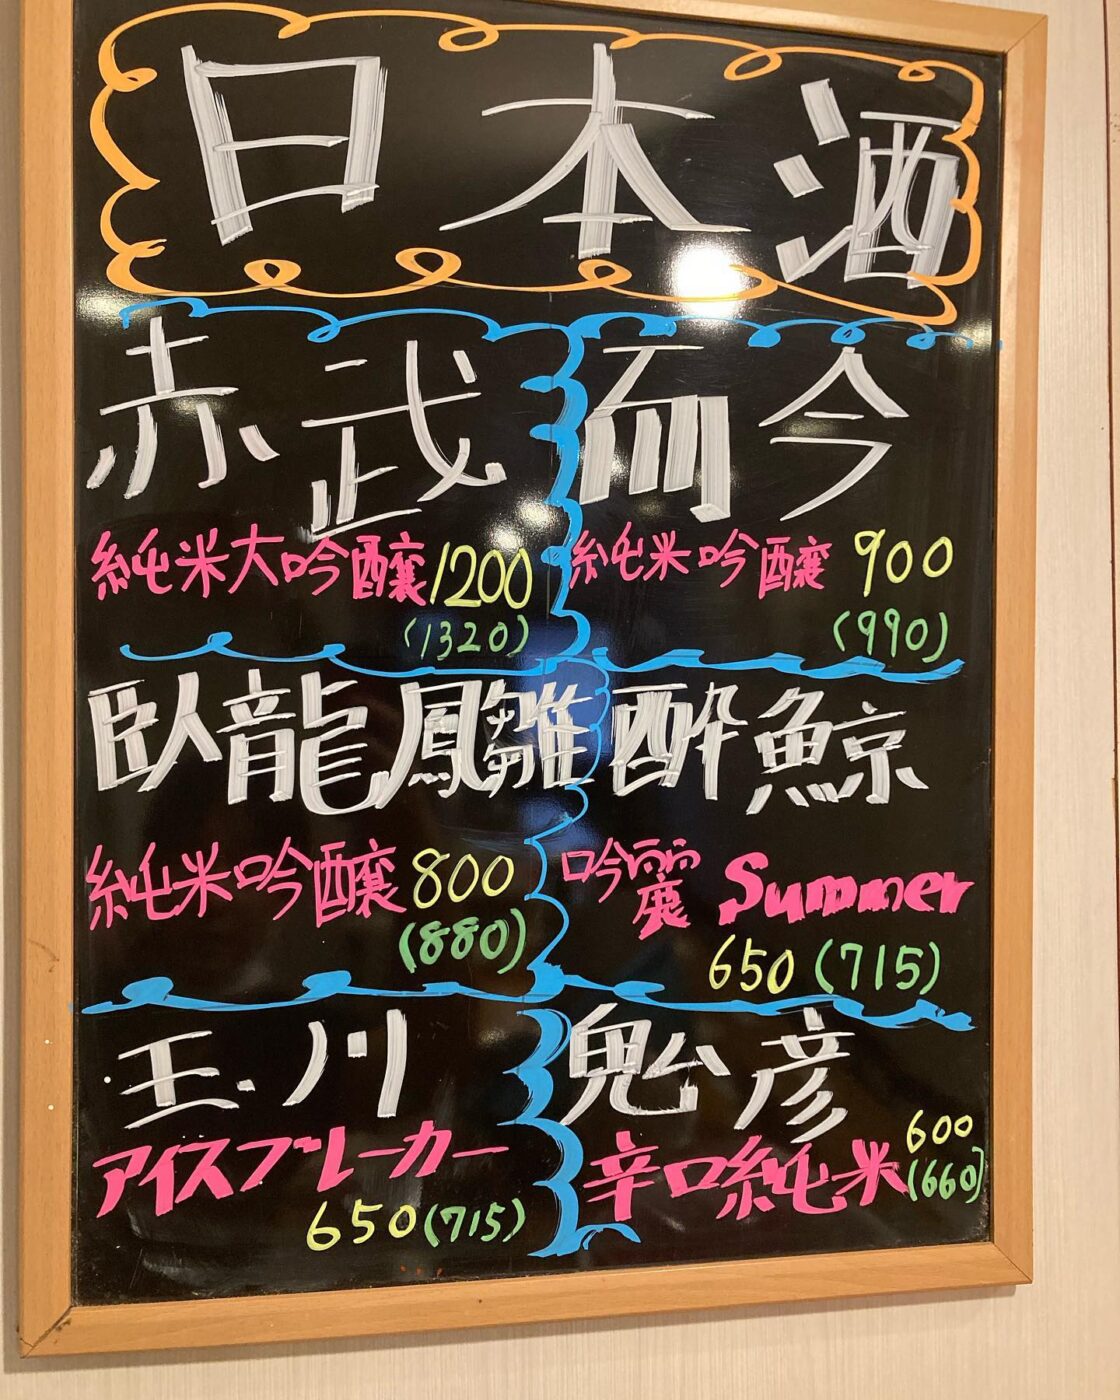 日本酒
赤武
純米大吟醸 1200
(1320)
而今
純米吟醸 900
(990)
臥龍鳳雛
純米吟醸 800
(880)
酔鯨
吟麗 Summer
650 (715)
玉川
アイスブレーカー
650 (715)
兜彦
辛口純米 600
(660)